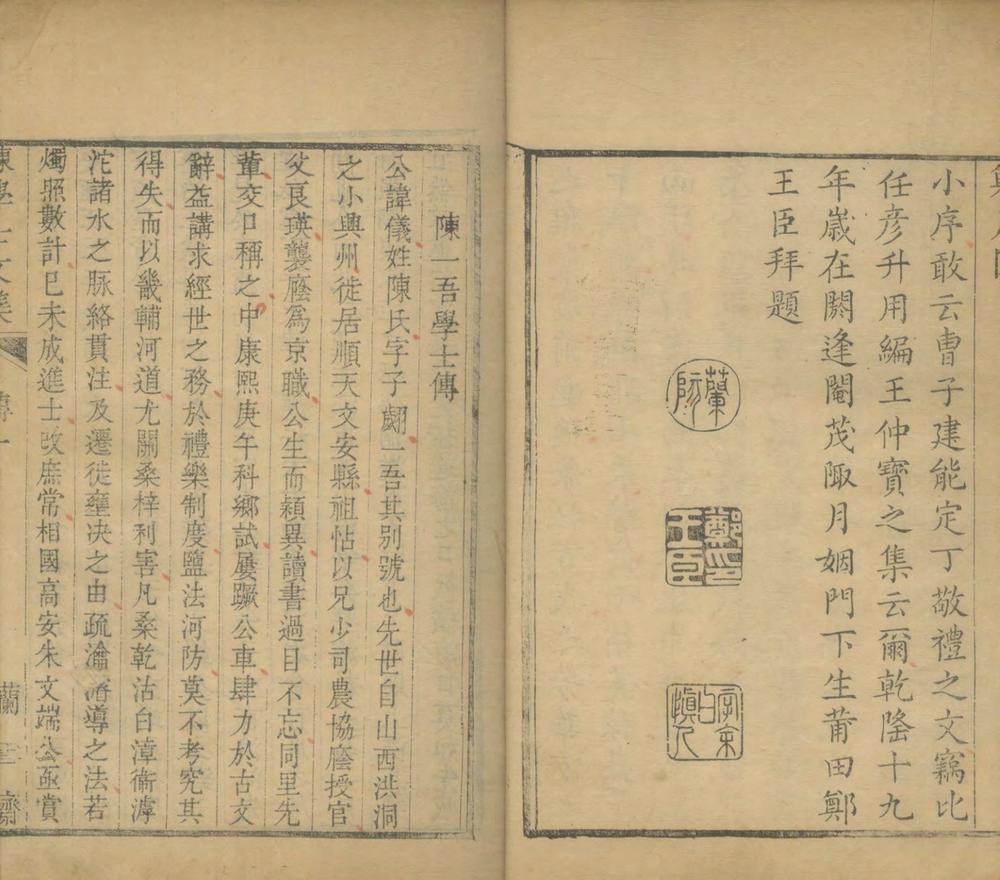 小序敢云曹子建能定丁敬禮之文竊比
任彦升用編王仲寶之集云爾乾隆十九
年歲在閼逢閹茂陬月姻門下生莆田鄭
王臣拜題
蘭陔
鄭王臣印
字余曰慎人
陳一吾學士傳
公諱儀姓陳氏字子翽一吾其别號也先世自山西洪洞
之小興州徙居順天文安縣祖怗以兄少司農協廕授官
父良瑛襲廕爲京職公生而穎異讀書過目不忘同里先
輩交口稱之中康熙庚午科鄉試屢蹶公車肆力於古文
辭益講求經世之務於禮樂制度鹽法河防莫不考究其
得失而以畿輔河道尤關桑梓利害凡桑乾沽白漳衞滹
沱諸水之脉絡貫注及遷徙壅决之由疏瀹濬導之法若
燭照數計巳未成進士改庶常相國高安朱文端公亟賞
陳學士文集
傳一
蘭玉齋